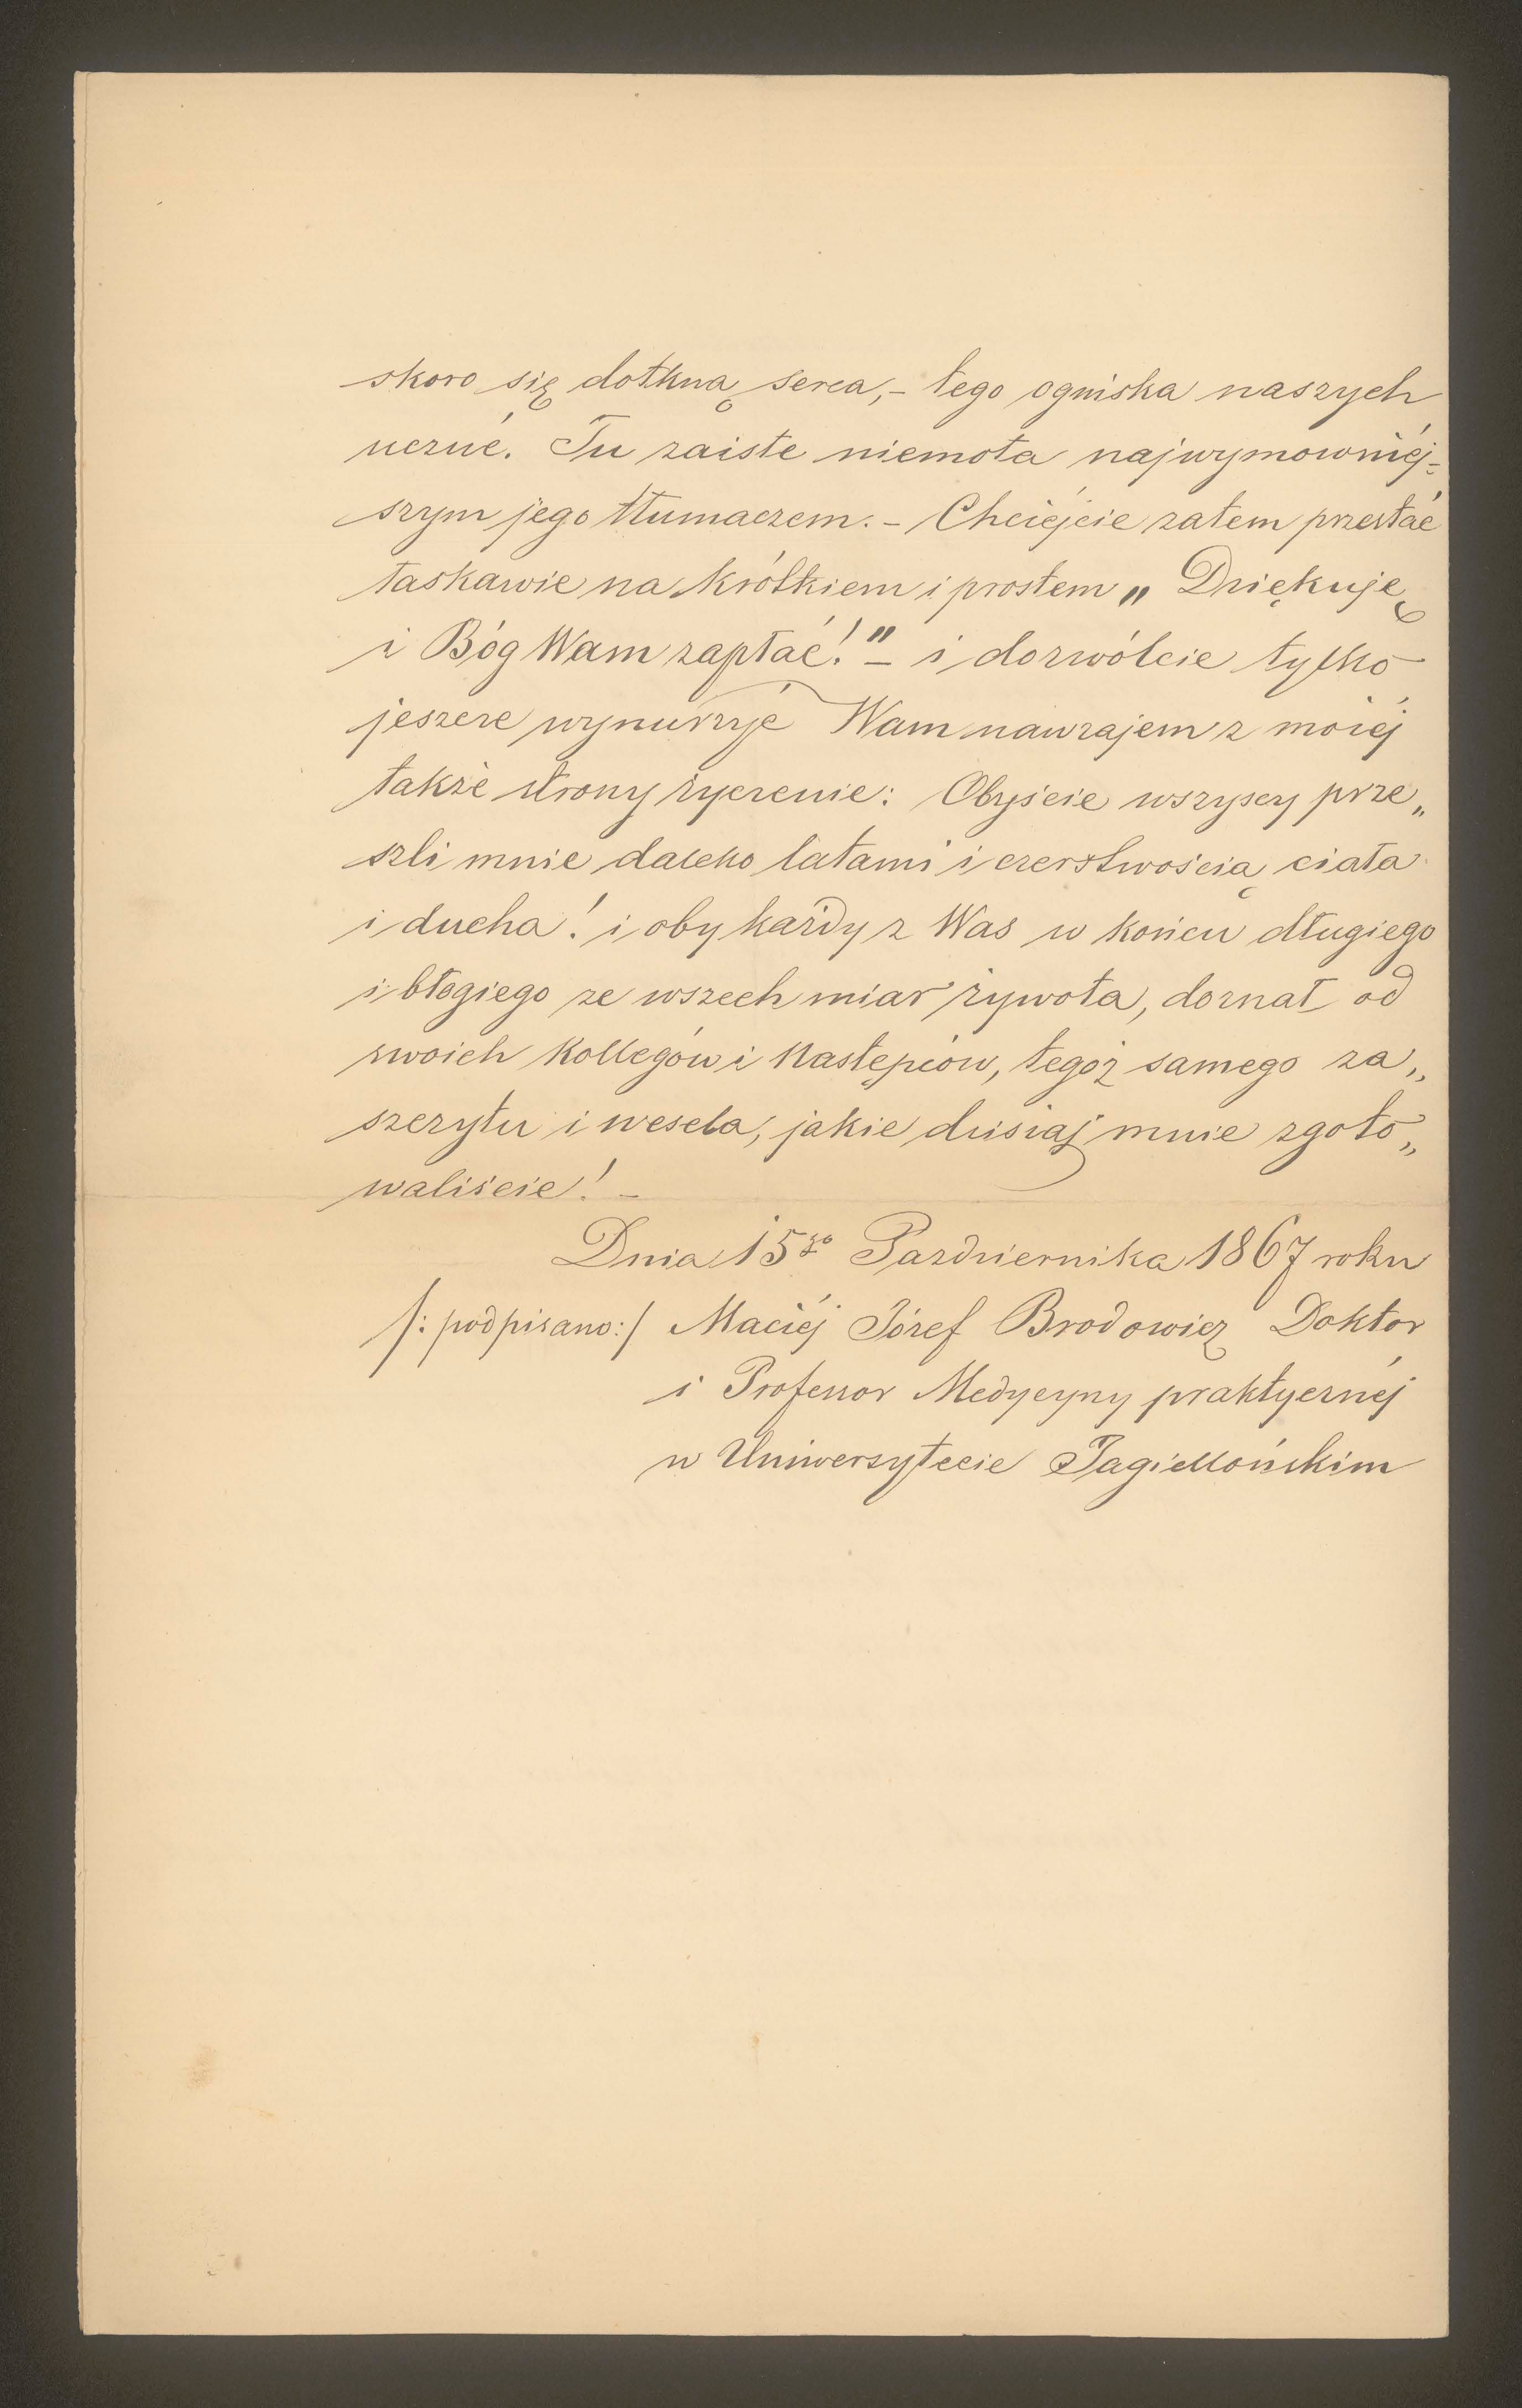 skoro się dotkną serca,- tego ogniska naszych
uczuć. Tu zaiste niemota najwymowniéj=
szym jego tłumaczem.- Chciéjcie zatem przestać
łaskawie na krótkiem i prostem „ Dziękuję
i Bóg Wam zapłać!" - i dozwólcie tylko
jeszcze wynurzyć Wam nawzajem z moiéj
także strony życzenie: Obyście wszyscy prze„
szli mnie daleko latami i czerstwością ciała
i ducha! i oby każdy z Was w końcu długiego
i błogiego ze wszech miar żywota, doznał od
swoich Kollegów i Następców, tegoż samego za„
szczytu i wesela, jakie dzisiaj mnie zgoto„
waliście! -
Dnia 15go Pazdziernika 1867 roku
/: podpisano:/ Maciéj Józef Brodowicz Doktor
i Professor Medycyny praktycznéj
w Uniwersytecie Jagiellońskim